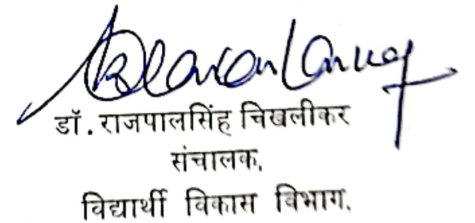 डॉ. राजपालसिंह चिखलीकर
संचालक,
विद्यार्थी विकास विभाग,